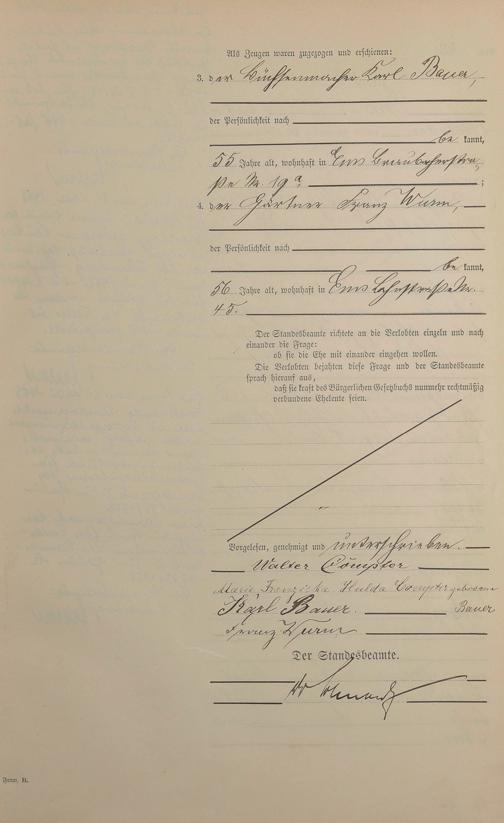 Als Zeugen waren zugezogen und erschienen:
3. der Büchsenmacher Karl Bauer,
der Persönlichkeit nach
be kannt,
55 Jahre alt, wohnhaft in Ems Braubacherstra-
ße Nr. 19a ;
4. der Gärtner Franz Wurm,
der Persönlichkeit nach
be kannt,
56 Jahre alt, wohnhaft in Ems Lahnstraße Nr.
45.
Der Standesbeamte richtete an die Verlobten einzeln und nach
einander die Frage:
ob sie die Ehe mit einander eingehen wollen.
Die Verlobten bejahten diese Frage und der Standesbeamte
sprach hierauf aus,
daß sie kraft des Bürgerlichen Gesetzbuchs nunmehr rechtmäßig
verbundene Eheleute seien.
Vorgelesen, genehmigt und unterschrieben.
Walter Compter
Marie Franziska Hulda Compter geborene
Bauer
Karl Bauer.
Franz Wurm
Der Standesbeamte.
Form. B.